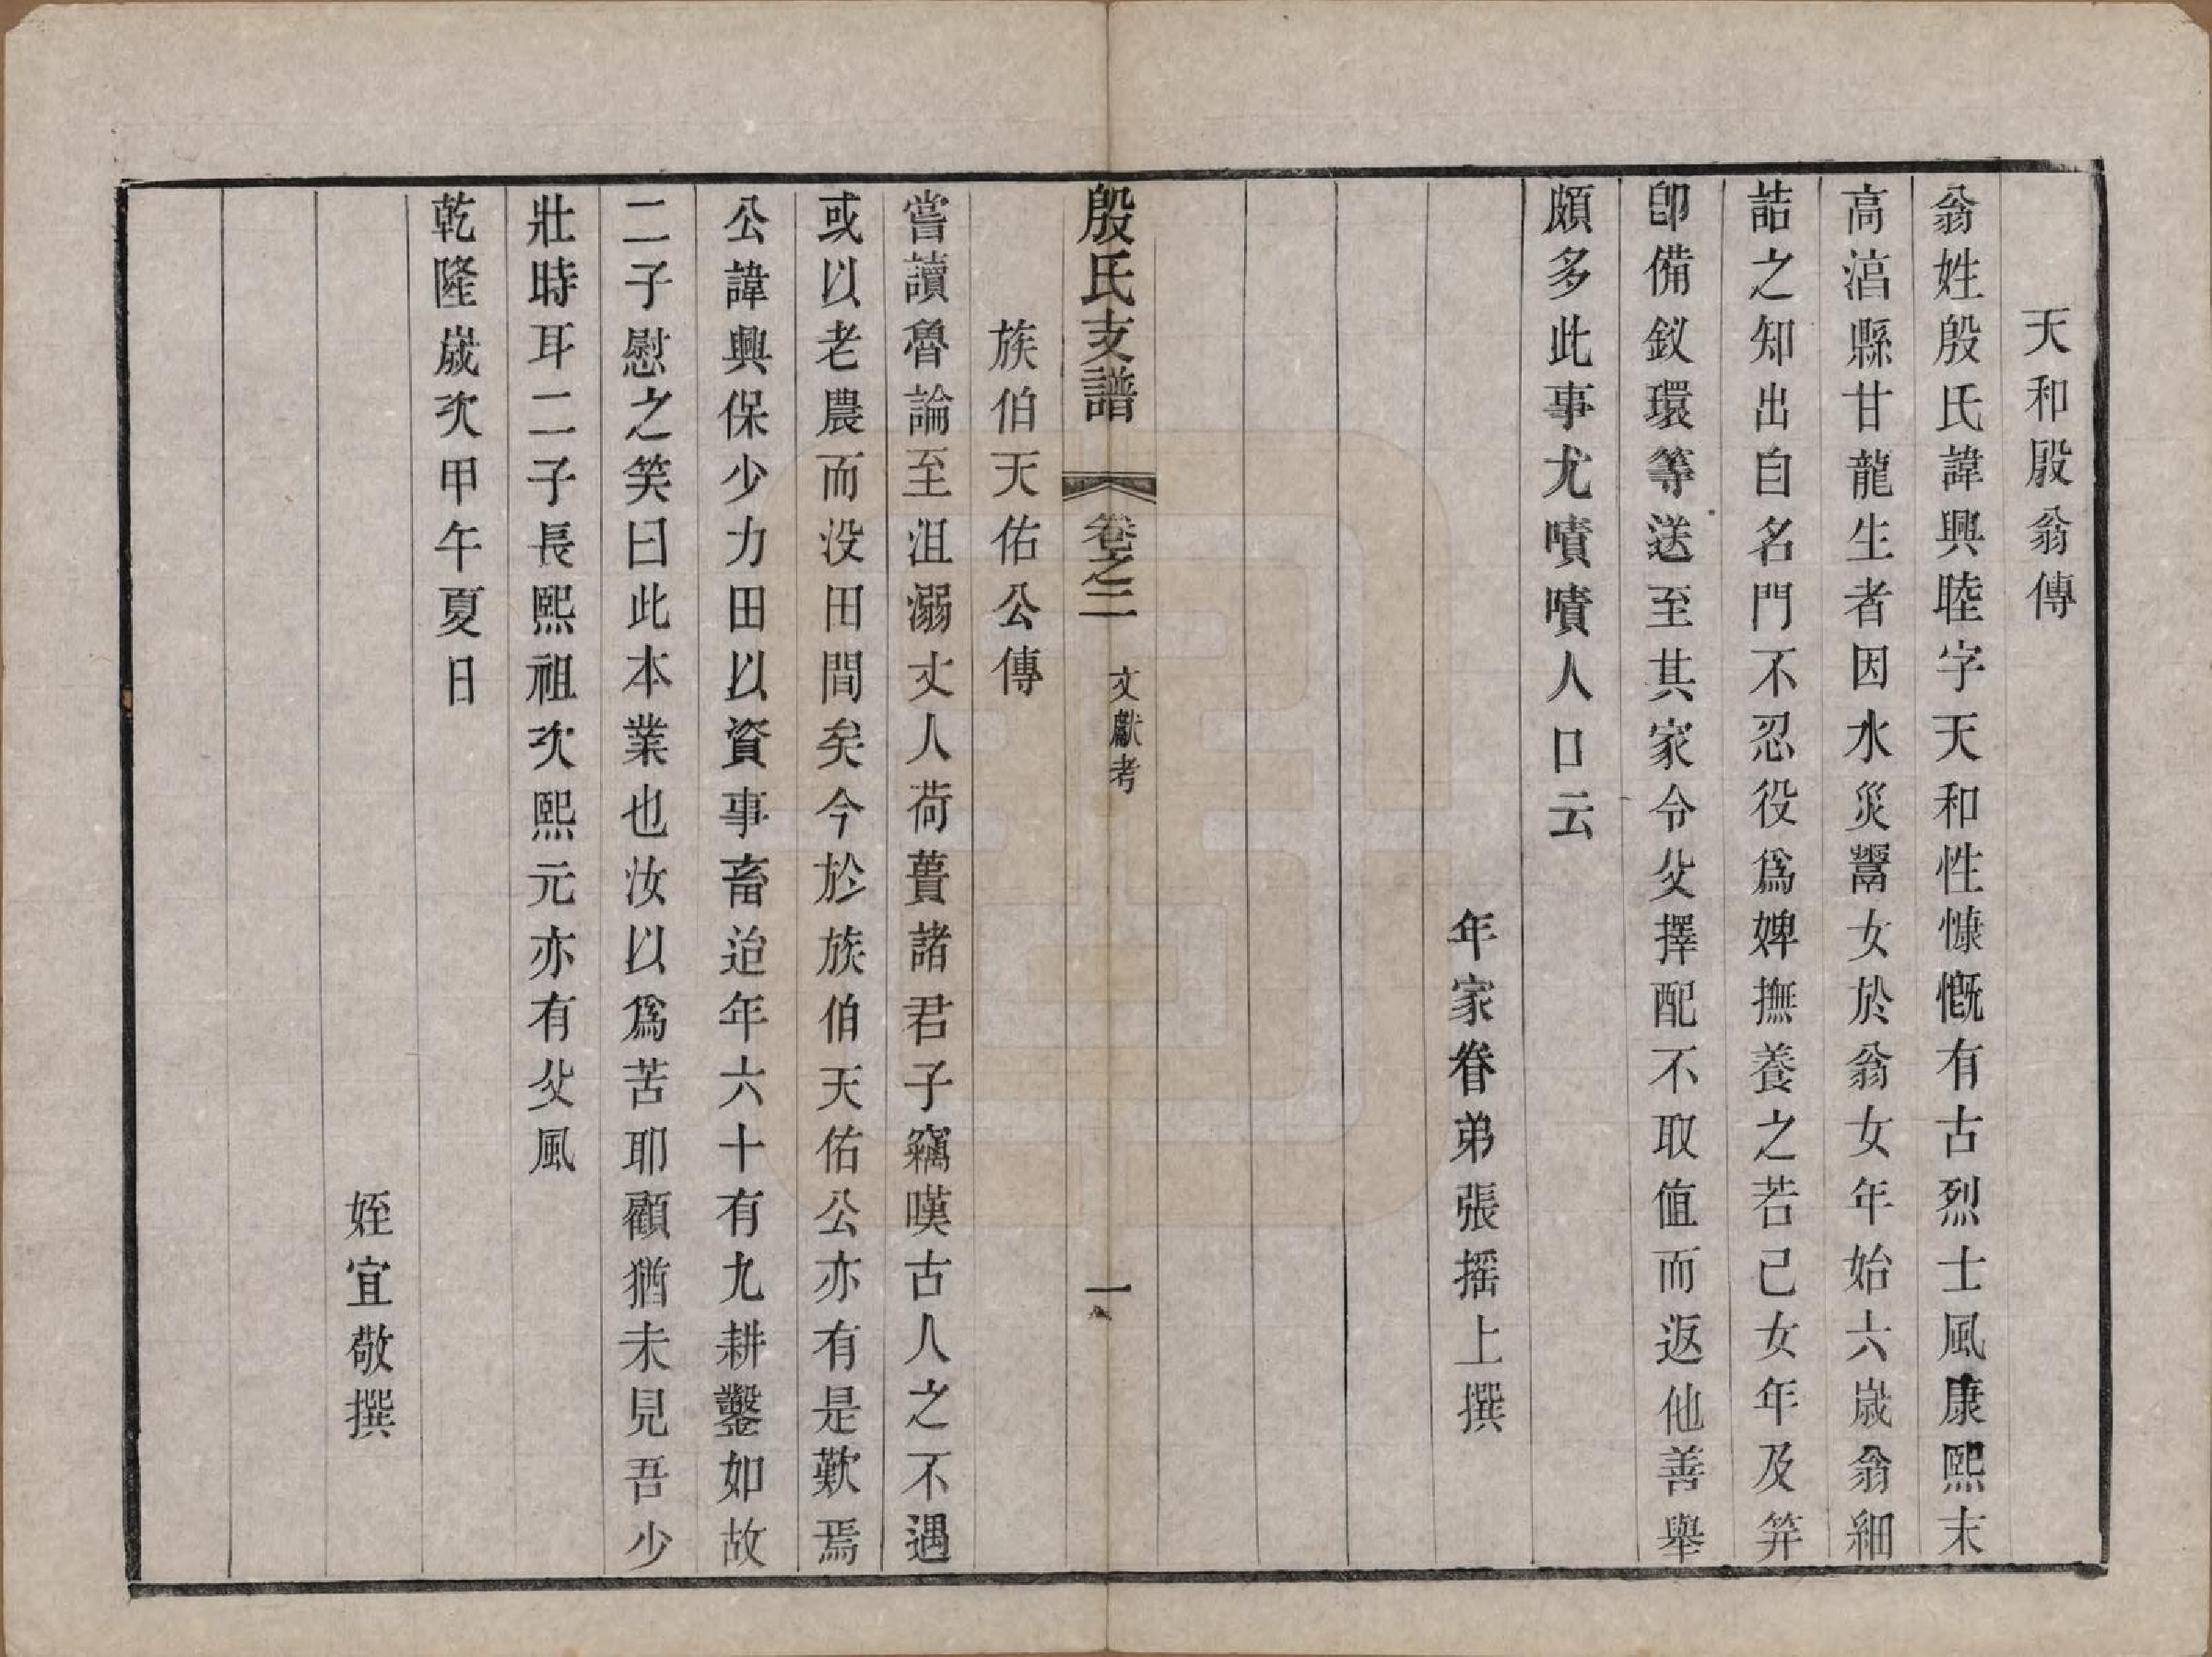 天和殷翁傳
翁姓殷氏諱興睦字天和性慷慨有古烈士風康熙末
高湻縣甘龍生者因水災鬻女於翁女年始六歲翁細
詰之知出自名門不忍役爲婢撫養之若己女年及笄
卽備釵環等送至其家令父擇配不取値而返他善舉
頗多此事尤嘖嘖人口云
年家眷弟張摇上撰
殷氏支譜
卷之二
文獻考
一
族伯天佑公傳
嘗讀魯論至沮溺丈人荷蕢諸君子竊嘆古人之不遇
或以老農而没田間矣今於族伯天佑公亦有是歎焉
公諱興保少力田以資事畜迨年六十有九耕鑿如故
二子慰之笑曰此本業也汝以爲苦耶顧猶未見吾少
壯時耳二子長熙祖次熙元亦有父風
乾隆歲次甲午夏日
姪宜敬撰